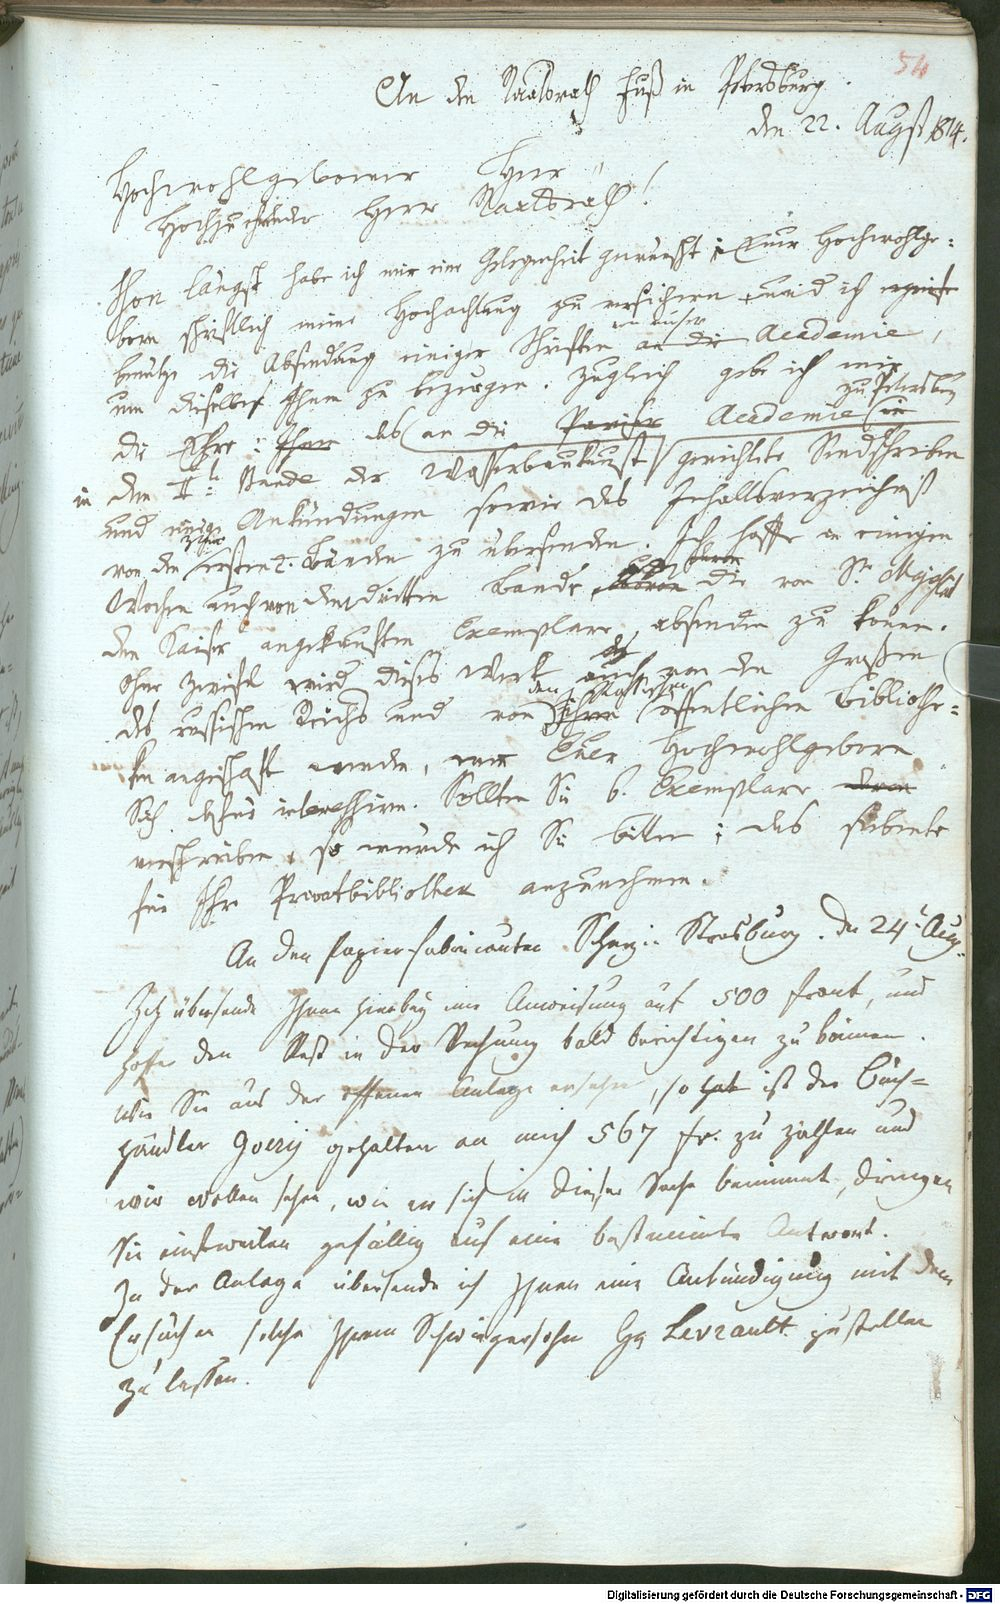 54
An den Staatsrath Fuß in Petersburg.
den 22. August 1814.
Hochwohlgeborner Herr
Hochzuehrender Herr Staatsrath!
Schon längst habe ich mir eine Gelegenheit gewünscht Euer Hochwohlge=
born schriftlich meine Hochachtung zu versichern und ich ergreife
benütze die Absendung einiger Schriften an die Academie,
an unser
um dieselbe Ihnen zu bezeugen. Zugleich gebe ich mir
zu Petersburg
die Ehre: Ihnen das an die Pariser Academie in
in dem II. Bande der Wasserbaukunst gerichtete Sendschreiben
und einige Ankündungen sowie das Inhaltsverzeichniß
von den ersten 2. Bänden zu übersenden. Ich hoffe in einigen
Wochen auch von dem dritten Bande die von Sr. Majestät
dem Kaiser angekauften Exemplare absenden zu können.
Ohne Zweifel wird dieses Werk auch von den Großen
des russischen Reichs und von den öffentlichen Bibliothe=
ken angeschaft werden, wenn Euer Hochwohlgeborn
Sich dafür interessiren. Sollten Sie 6. Exemplare davon
verschreiben, so würde ich Sie bitten; das siebente
für Ihre Privatbibliothek anzunehmen.
An den Papier-fabricanten in Strasburg. den 24t. Aug.
Ich übersende Ihnen hierbey eine Anweisung auf 500 frank, und
hoffe den Rest in der Rechnung bald berichtigen zu können.
Wie Sie aus der offenen Anlage ersehen, so hat ist der Buch=
händler gehalten an mich 567 fr. zu zahlen und
wir wollen sehen, wie er sich in dieser Sache benimmt, dringen
Sie einstweilen gefällig auf eine bestimmte Antwort.
In der Anlage übersende ich Ihnen eine Ankündigung mit dem
Ersuchen solche Ihrem Schwiegersohn Levrault zustellen
zu lassen.
Digitalisierung gefördert durch die Deutsche Forschungsgemeinschaft - DFG